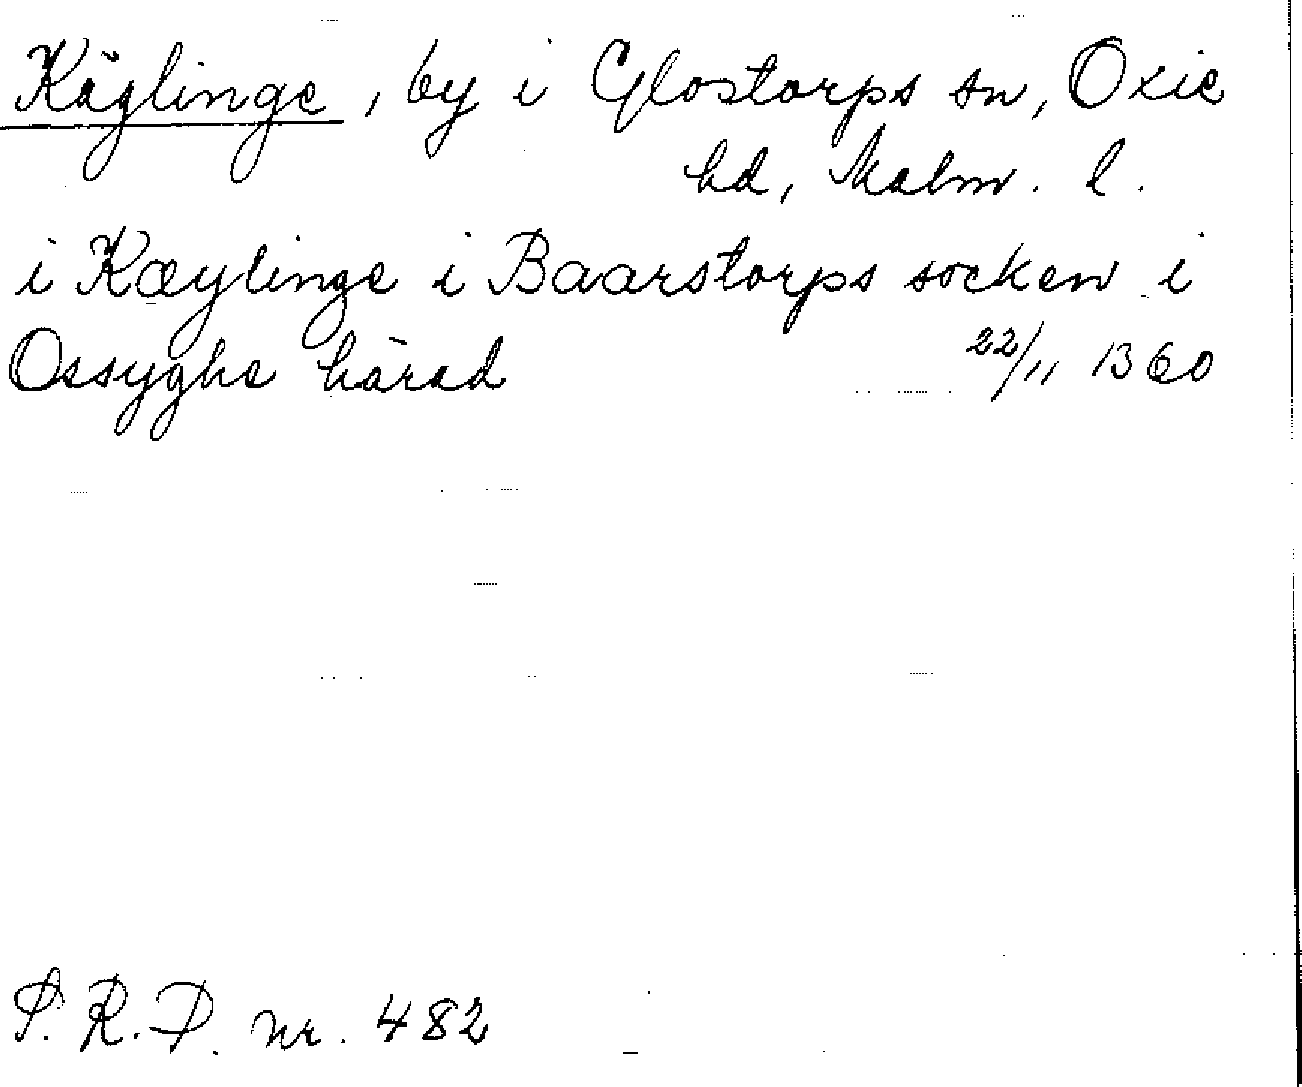 Käglinge, by i Glostorps sn, Oxie
hd, Malm. l.
i Kæylinge i Baarstorps socken i
Ossyghe härad 22/11 1360
S. R. P. nr. 482